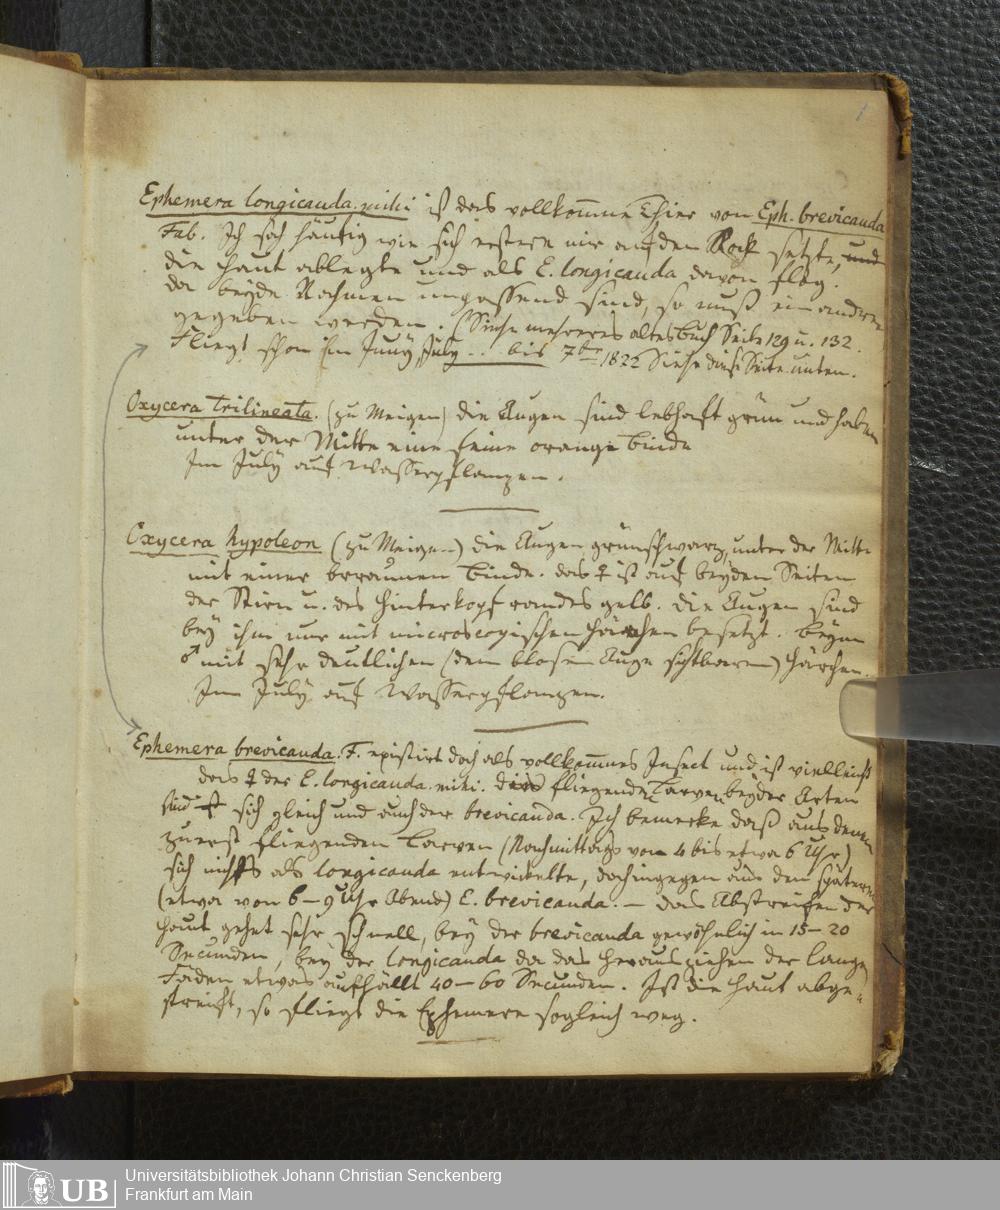 1
Ephemera longicauda. mihi ist das vollkom̅ne Thier von Eph. brevicauda
Fab. Ich sah häufig wie sich erstere mir auf den Rock setzte, und
die Haut ablegte und als E. longicauda davon flog.
da beyde Nahmen unpassend sind, so muß ein andrer
gegeben werden. (Siehe mehreres altes Buch Seite 129 u. 132.
Fliegt schon im Juny, July -- bis 7br 1822 Siehe diese Seite unten.
Oxycera trilineata. (zu Meigen) die Augen sind lebhaft grün und haben
unter der Mitte eine feine orange Binde
Im July auf Wasserpflanzen.
Oxycera hypoleon (zu Meigen) die Augen grünschwarz, unter der Mitte
mit einer braunen Binde. das ♀ ist auf beyden Seiten
der Stirn u. des Hinterkopfrandes gelb. die Augen sind
bey ihm nur mit microscopischen Härchen besetzt. beym
♂ mit sehr deutlichen (dem blosen Auge sichtbaren) Härchen.
Im July auf Wasserpflanzen.
Ephemera brevicauda. F. existirt doch als vollkom̅nes Insect und ist vielleicht
das ♀ der E. longicauda. mihi. die fliegenden Larven beyder Arten
sind sich gleich und auch der brevicauda. Ich bemerke daß aus denen
zuerst fliegenden Larven (Nachmittags von 4 bis etwa 6 Uhr)
sich nichts als longicauda entwickelte, dahingegen aus den spätern
(etwa von 6-9 Uhr Abend) E. brevicauda. - das Abstreifen der
Haut gehet sehr schnell, bey der brevicauda gewöhnlich in 15-20
Secunden, bey der longicauda da das herausziehen der langen
Fäden etwas aufhällt 40-60 Secunden. Ist die Haut abge=
streift, so fliegt die Ephemere sogleich weg.
UB
Universitätsbibliothek Johann Christian Senckenberg
Frankfurt am Main